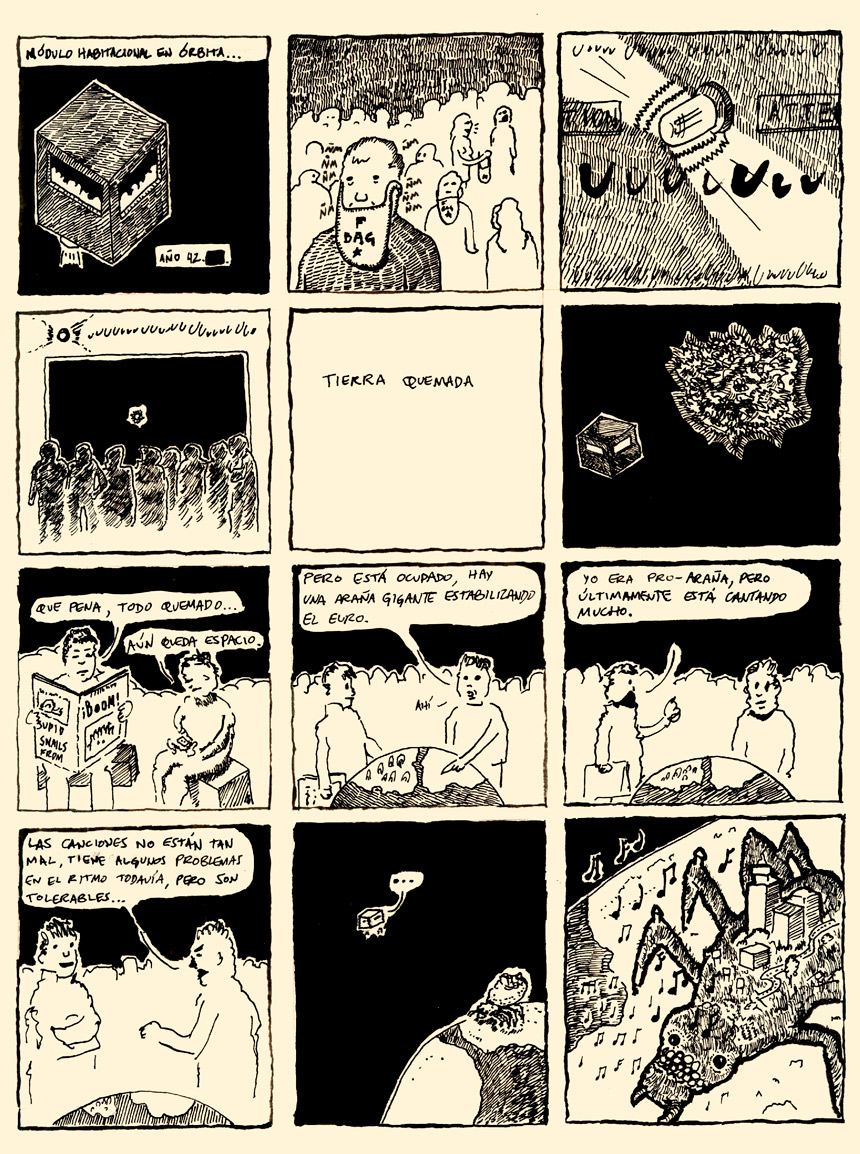 MÓDULO HABITACIONAL EN ÓRBITA...
AÑO 42.
ÑM
ÑM
ÑM
ÑM
ÑM
ÑM
ÑM
ÑM
F
DAG
ATTE
TIERRA QUEMADA
QUE PENA, TODO QUEMADO...
AÚN QUEDA ESPACIO.
¡BOOM!
SNAILS
FROM
PERO ESTÁ OCUPADO, HAY
UNA ARAÑA GIGANTE ESTABILIZANDO
EL EURO.
AHÍ
YO ERA PRO-ARAÑA, PERO
ÚLTIMAMENTE ESTÁ CANTANDO
MUCHO.
LAS CANCIONES NO ESTÁN TAN
MAL, TIENE ALGUNOS PROBLEMAS
EN EL RITMO TODAVÍA, PERO SON
TOLERABLES...
...